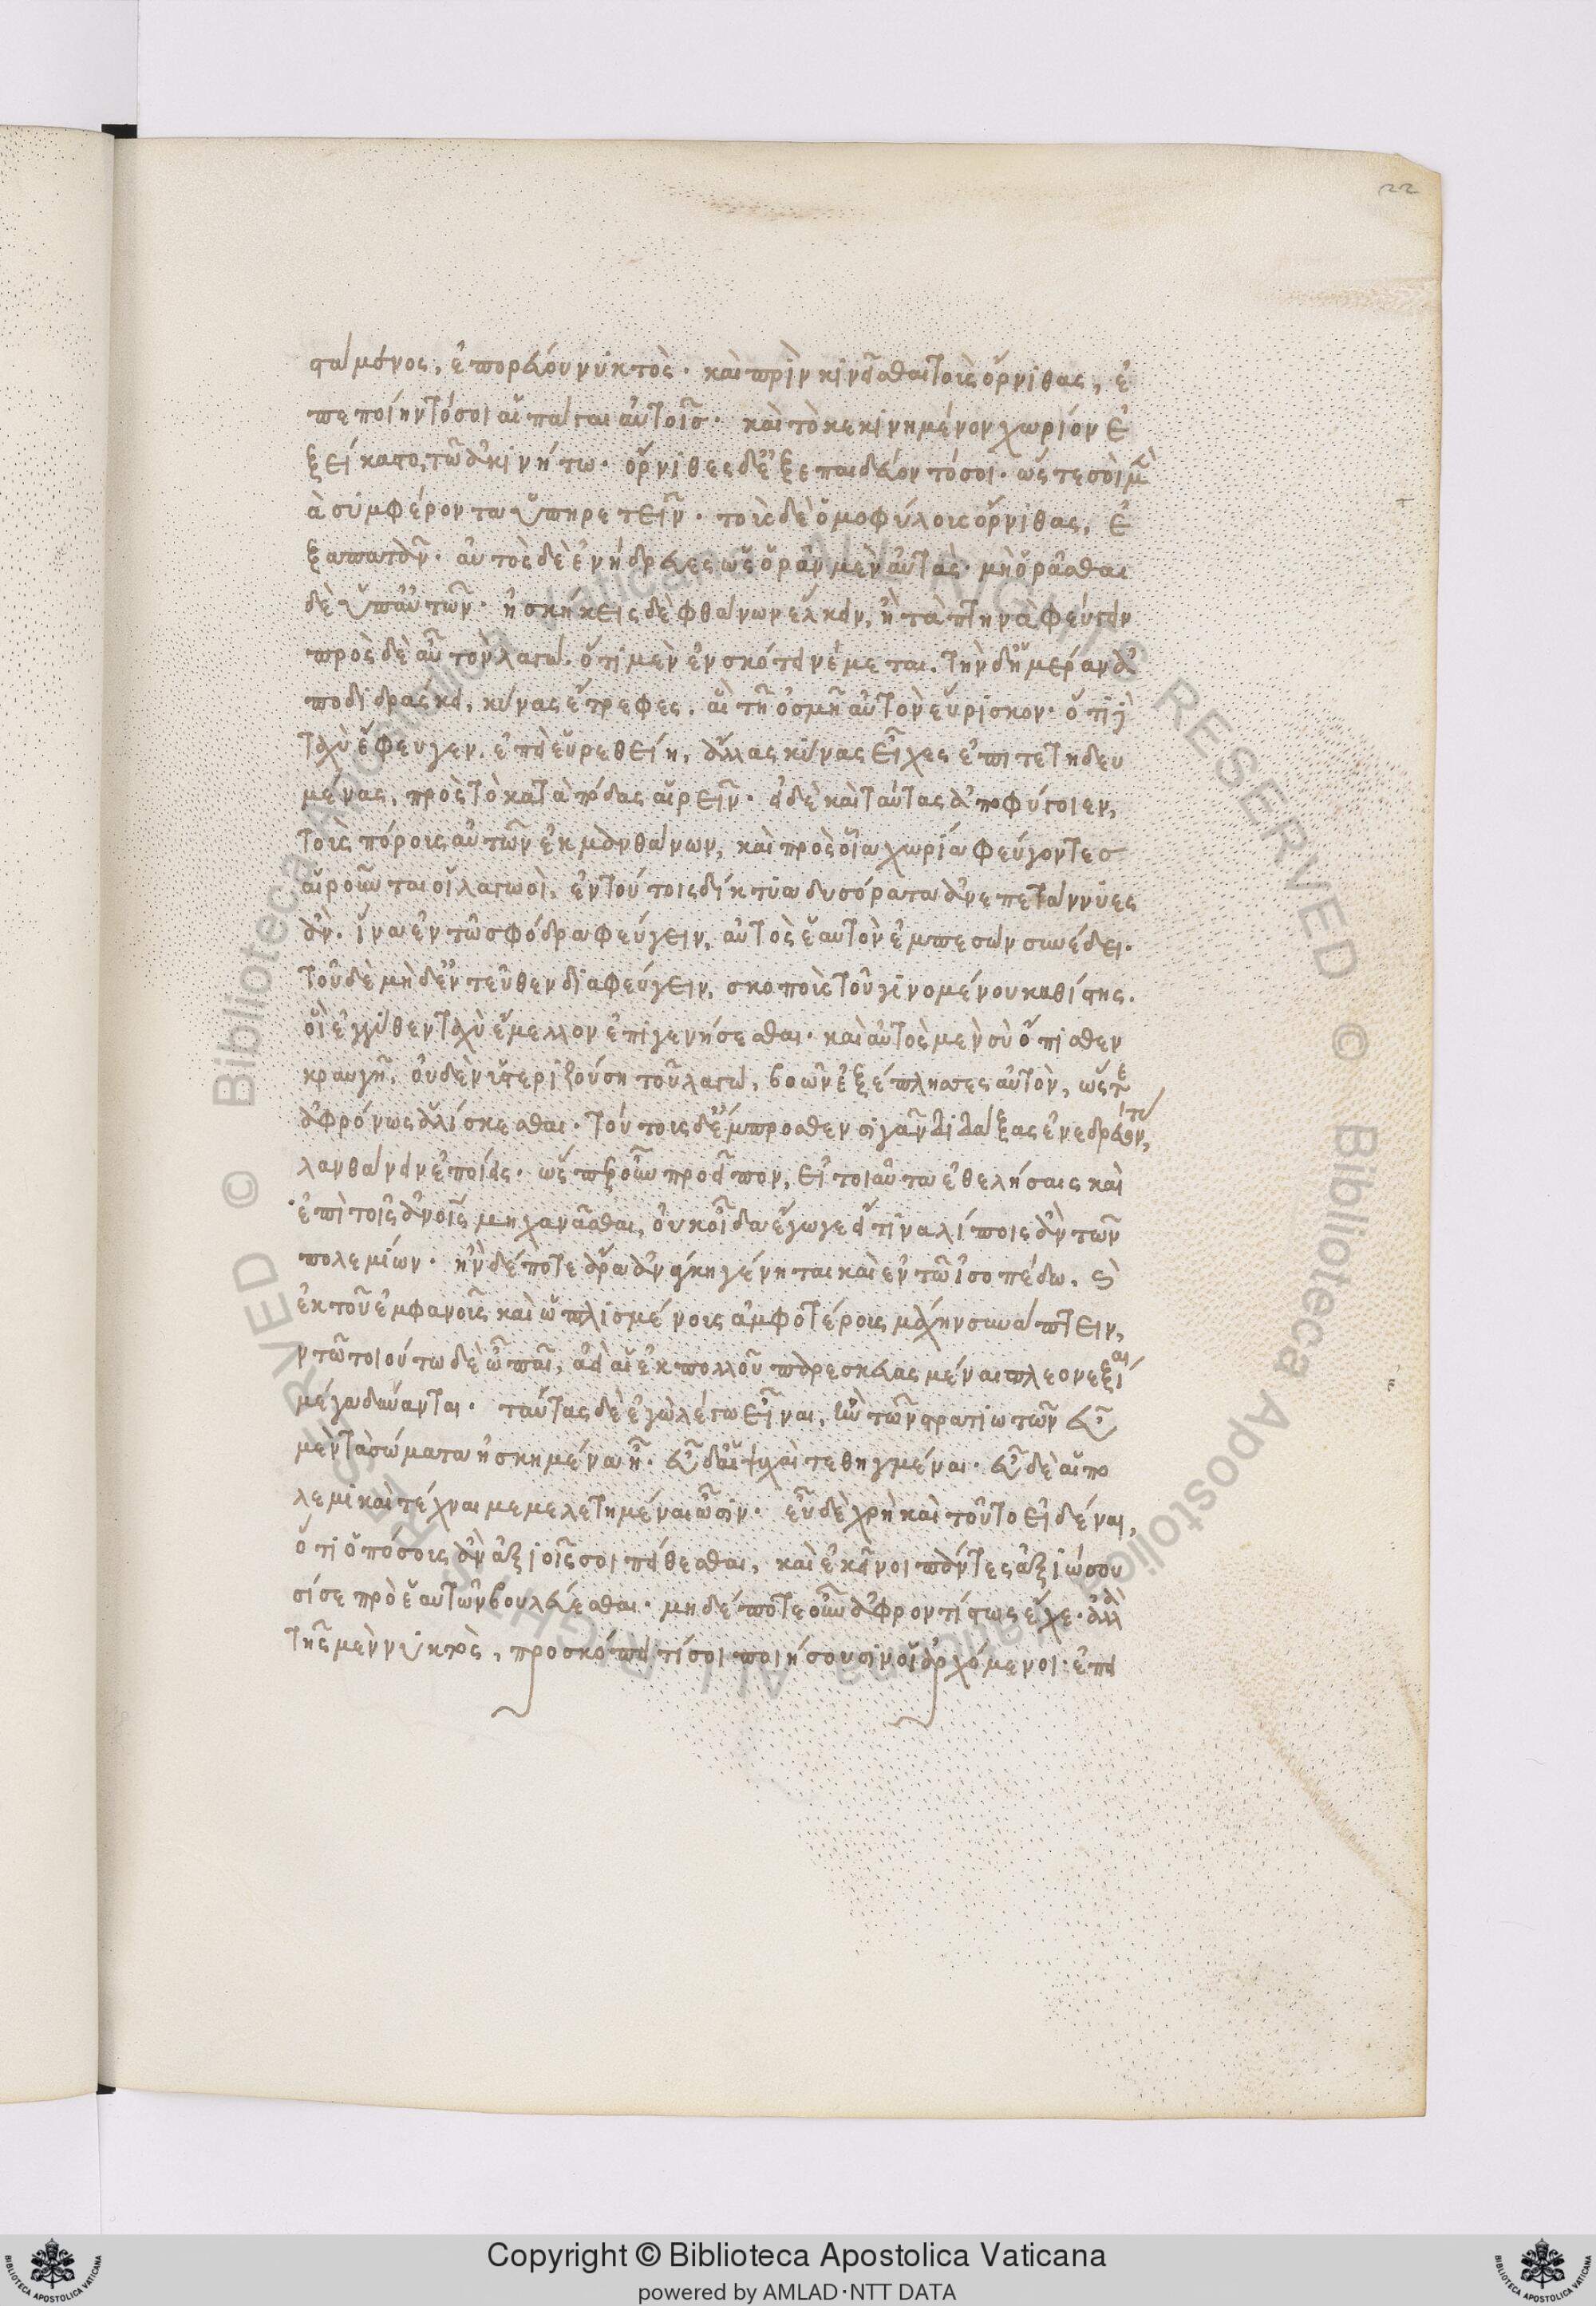 22
στάμενος, ἐπορεύου νυκτὸς· καὶ πρὶν κινεῖσθαι τοὺς ὄρνιθας, ἐ
πεποίηντό σοι αἱ πάγαι αὐτοῖσ· καὶ τὸ κεκινημένον χωρίον ἐ
ξείκαστο τῶ ἀκινήτω· ὄρνιθες δ' ἐξεπαιδεύοντό σοι· ὥστε σοὶ μὲν
ἃ συμφέροντα ὑπηρετεῖν· τοὺς δὲ ὁμοφύλους ὄρνιθας, ἐ
ξαπατᾶν· αὐτὸς δὲ ἐνήδρευες ὡς ὁρᾶν μὲν αὐτὰς· μὴ ὁρᾶσθαι
δὲ ὑπ' αὐτῶν· ἠσκήκεις δὲ φθάνων ἕλκειν, ἢ τὰ πτηνὰ φεύγειν
πρὸς δὲ αὖ τὸν λαγώ. ὅτι μὲν ἐν σκότει νέμεται. τὴν δ' ἡμέραν ἀ
ποδιδράσκει, κύνας ἔτρεφες, αἳ τῆ ὀσμῆ αὐτὸν εὕρισκον· ὅτι
ταχὺ ἔφευγεν, ἐπεὶ εὑρεθείη, ἄλλας κύνας εἶχες ἐπιτετηδευ
μένας, πρὸς τὸ κατὰ πόδας αἱρεῖν· εἰ δὲ καὶ ταύτας ἀποφύγοιεν,
τοὺς πόρους αὐτῶν ἐκμανθάνων, καὶ πρὸς οἷα χωρία φεύγοντεσ
αἱροῦνται οἱ λαγωοὶ, ἐν τούτοις δίκτυα δυσόρατα ἀνεπετάννυες
ἂν. ἵνα ἐν τῶ σφόδρα φεύγειν, αὐτὸς ἑαυτὸν ἐμπεσὼν συνέδει.
τοῦ δὲ μὴδ' ἐντεῦθεν διαφεύγειν, σκοποὺς τοῦ γινομένου καθίστης.
οἳ ἐγγύθεν ταχὺ ἔμελλον ἐπιγενήσεσθαι· καὶ αὐτὸς μὲν σὺ ὄπισθεν
κραυγῆ, οὐδὲν ὑστεριζούση τοῦ λαγώ, βοῶν ἐξέπληττες αὐτὸν, ὥστε
ἀφρόνως ἁλίσκεσθαι. τούτους δ' ἔμπροσθεν σιγᾶν διδάξας ἐνεδρεύοντας,
λανθάνειν ἐποίεις. ὡς προεῖπον, εἰ τοιαῦτα ἐθελήσαις καὶ
ἐπὶ τοῖς ἀνοις μηχανᾶσθαι, οὐκ οἶδα ἔγωγε εἴ τινα λίποις ἂν τῶν
πολεμίων· ἢν δέ ποτε ἄρα ἀνάγκη γένηται καὶ ἐν τῶ ἰσοπέδω, καὶ
ἐκ τοῦ ἐμφανοῦς καὶ ὡπλισμένους ἀμφοτέρους μάχην συνάπτειν,
ν τῶ τοιούτω δὲ ὦ παῖ, αἱ ἐκ πολλοῦ παρεσκευασμέναι πλεονεξίαι
μέγα δύνανται. ταύτας δὲ ἐγὼ λέγω εἶναι, ἢν τῶν στρατιωτῶν εὖ
μὲν τὰ σώματα ἠσκημένα ἦ. εὖ δὲ αἱ ψυχαὶ τεθηγμέναι. εὖ δὲ αἱ πο
λεμικαὶ τέχναι μεμελετημέναι ὦσιν· εὖ δὲ χρὴ καὶ τοῦτο εἰδέναι,
ὅτι ὁπόσους ἂν ἀξιοῖς σοι πείθεσθαι, καὶ ἐκεῖνοι πάντες ἀξιώσου
σί σε πρὸ ἑαυτῶν βουλεύεσθαι. μηδέποτε οὖν ἀφροντίστως ἔχε· ἀλλὰ
τῆς μὲν νυκτὸς, προσκόπει τί σοι ποιήσουσιν οἱ ἀρχόμενοι· ἐπεὶ
Copyright © Biblioteca Apostolica Vaticana
powered by AMLAD·NTT DATA